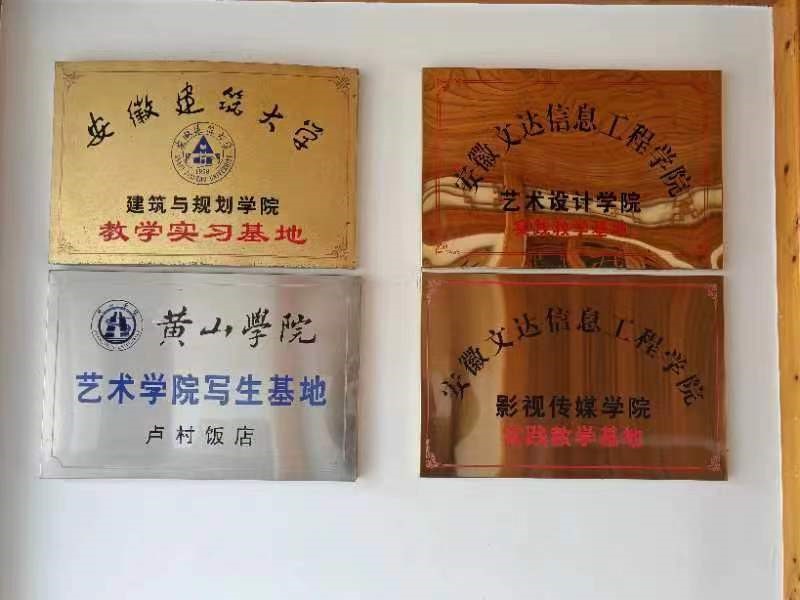 安徽建筑大学
1958
建筑与规划学院
教学实习基地
安徽文达信息工程学院
艺术设计学院
实践教学基地
黄山學院
艺术学院写生基地
卢村饭店
安徽文达信息工程学院
影视传媒学院
实践教学基地